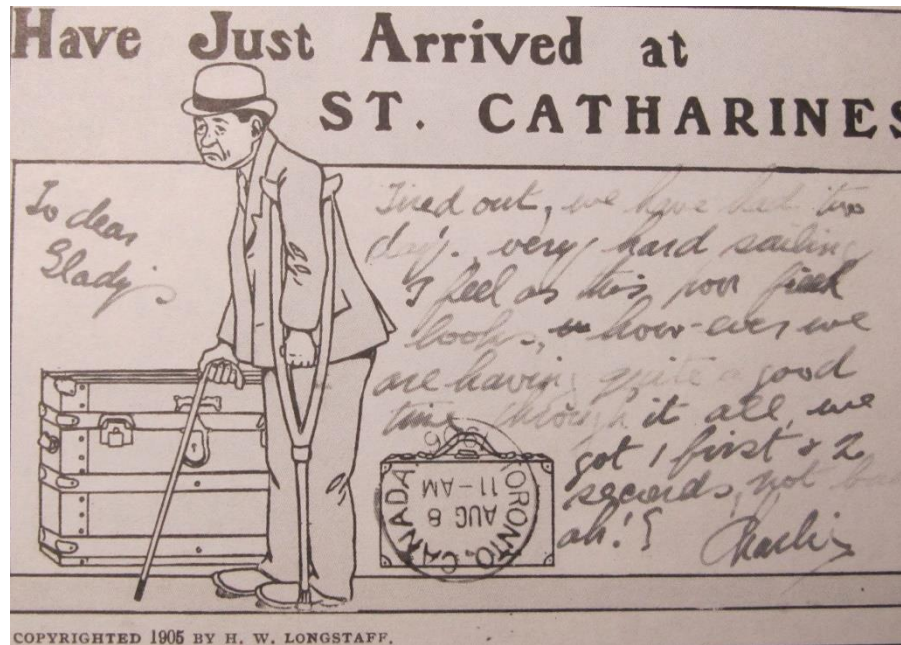 Have Just Arrived at
ST. CATHARINES
To dear
Gladys
Tired out, we have had two
days. very hard sailing
I feel as this poor freak
looks, how-ever we
are having quite a good
time through it all, we
got 1 first & 2
seconds, not bad
ah!
Charlie
TORONTO, CANADA
AUG 8
11-AM
COPYRIGHTED 1905 BY H. W. LONGSTAFF.